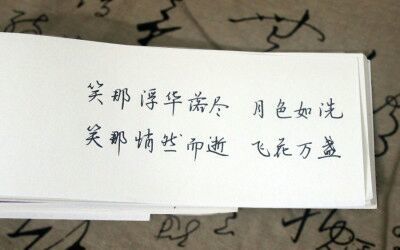 笑那浮华落尽 月色如洗
笑那悄然而逝 飞花万盏